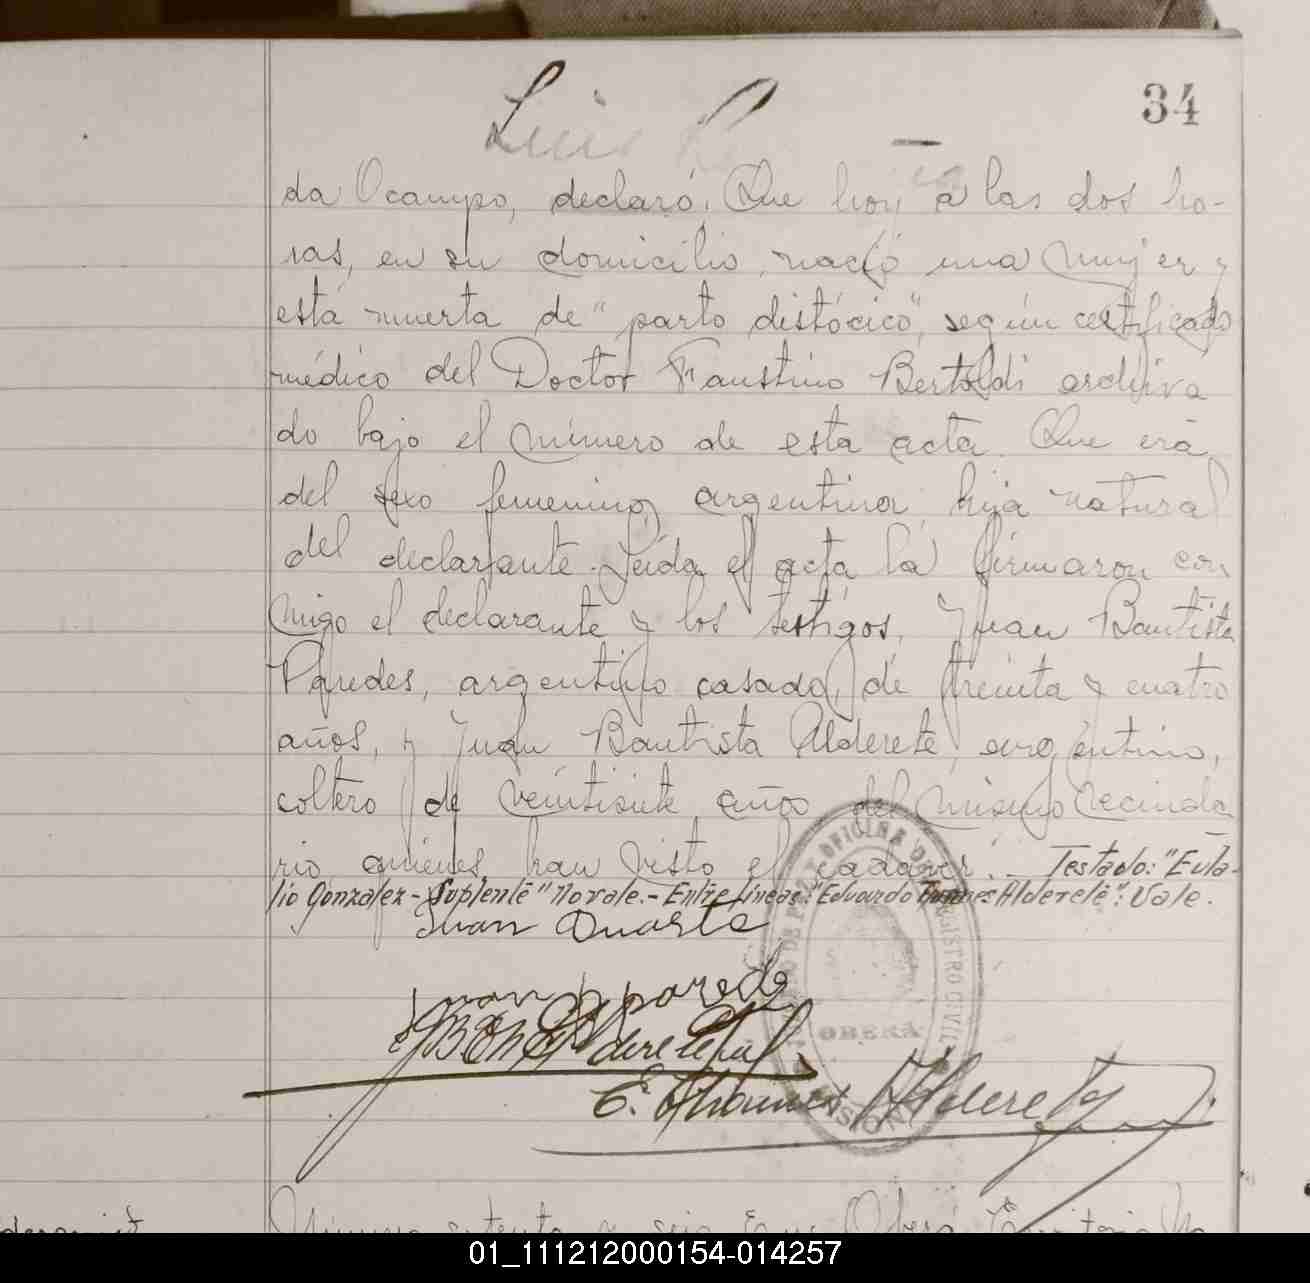 34
Luis
da Ocampo, declaró: Que hoy a las dos ho-
ras, en su domicilio, nació una mujer y
está muerta de "parto distócico", según certificado
médico del Doctor Faustino Bertoldi archiva
do bajo el número de esta acta. Que era
del sexo femenino, argentina, hija natural
del declarante. Leída el acta la firmaron con
migo el declarante y los testigos, Juan Bautista
Paredes, argentino casado, de treinta y cuatro
años, y Juan Bautista Alderete, argentino,
soltero de veintisiete años del mismo vecinda
rio quienes han visto el cadaver.- Testado: "Eula-
lio Gonzalez - Suplente" No vale.- Entre líneas: "Eduardo Alderete": Vale.
Juan Duarte
Juan B paredes
E. Alderete
OFICINA DEL REGISTRO CIVIL
OBERÁ
MISIONES
01_111212000154-014257